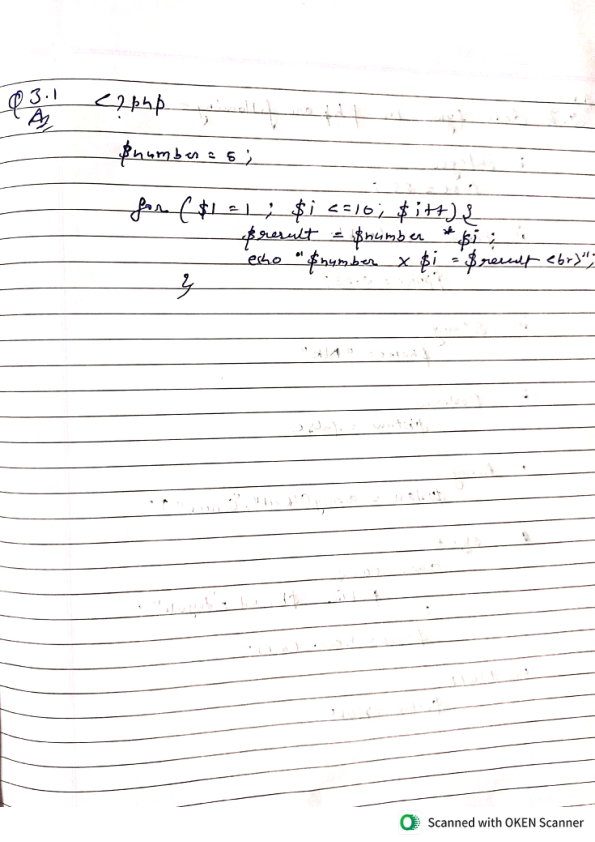 Q 3.1 <?php
A
$number = 5;
for ($1 = 1; $i <=10; $i++) {
$result = $number * $i;
echo "$number x $i = $result <br>";
}
Scanned with OKEN Scanner